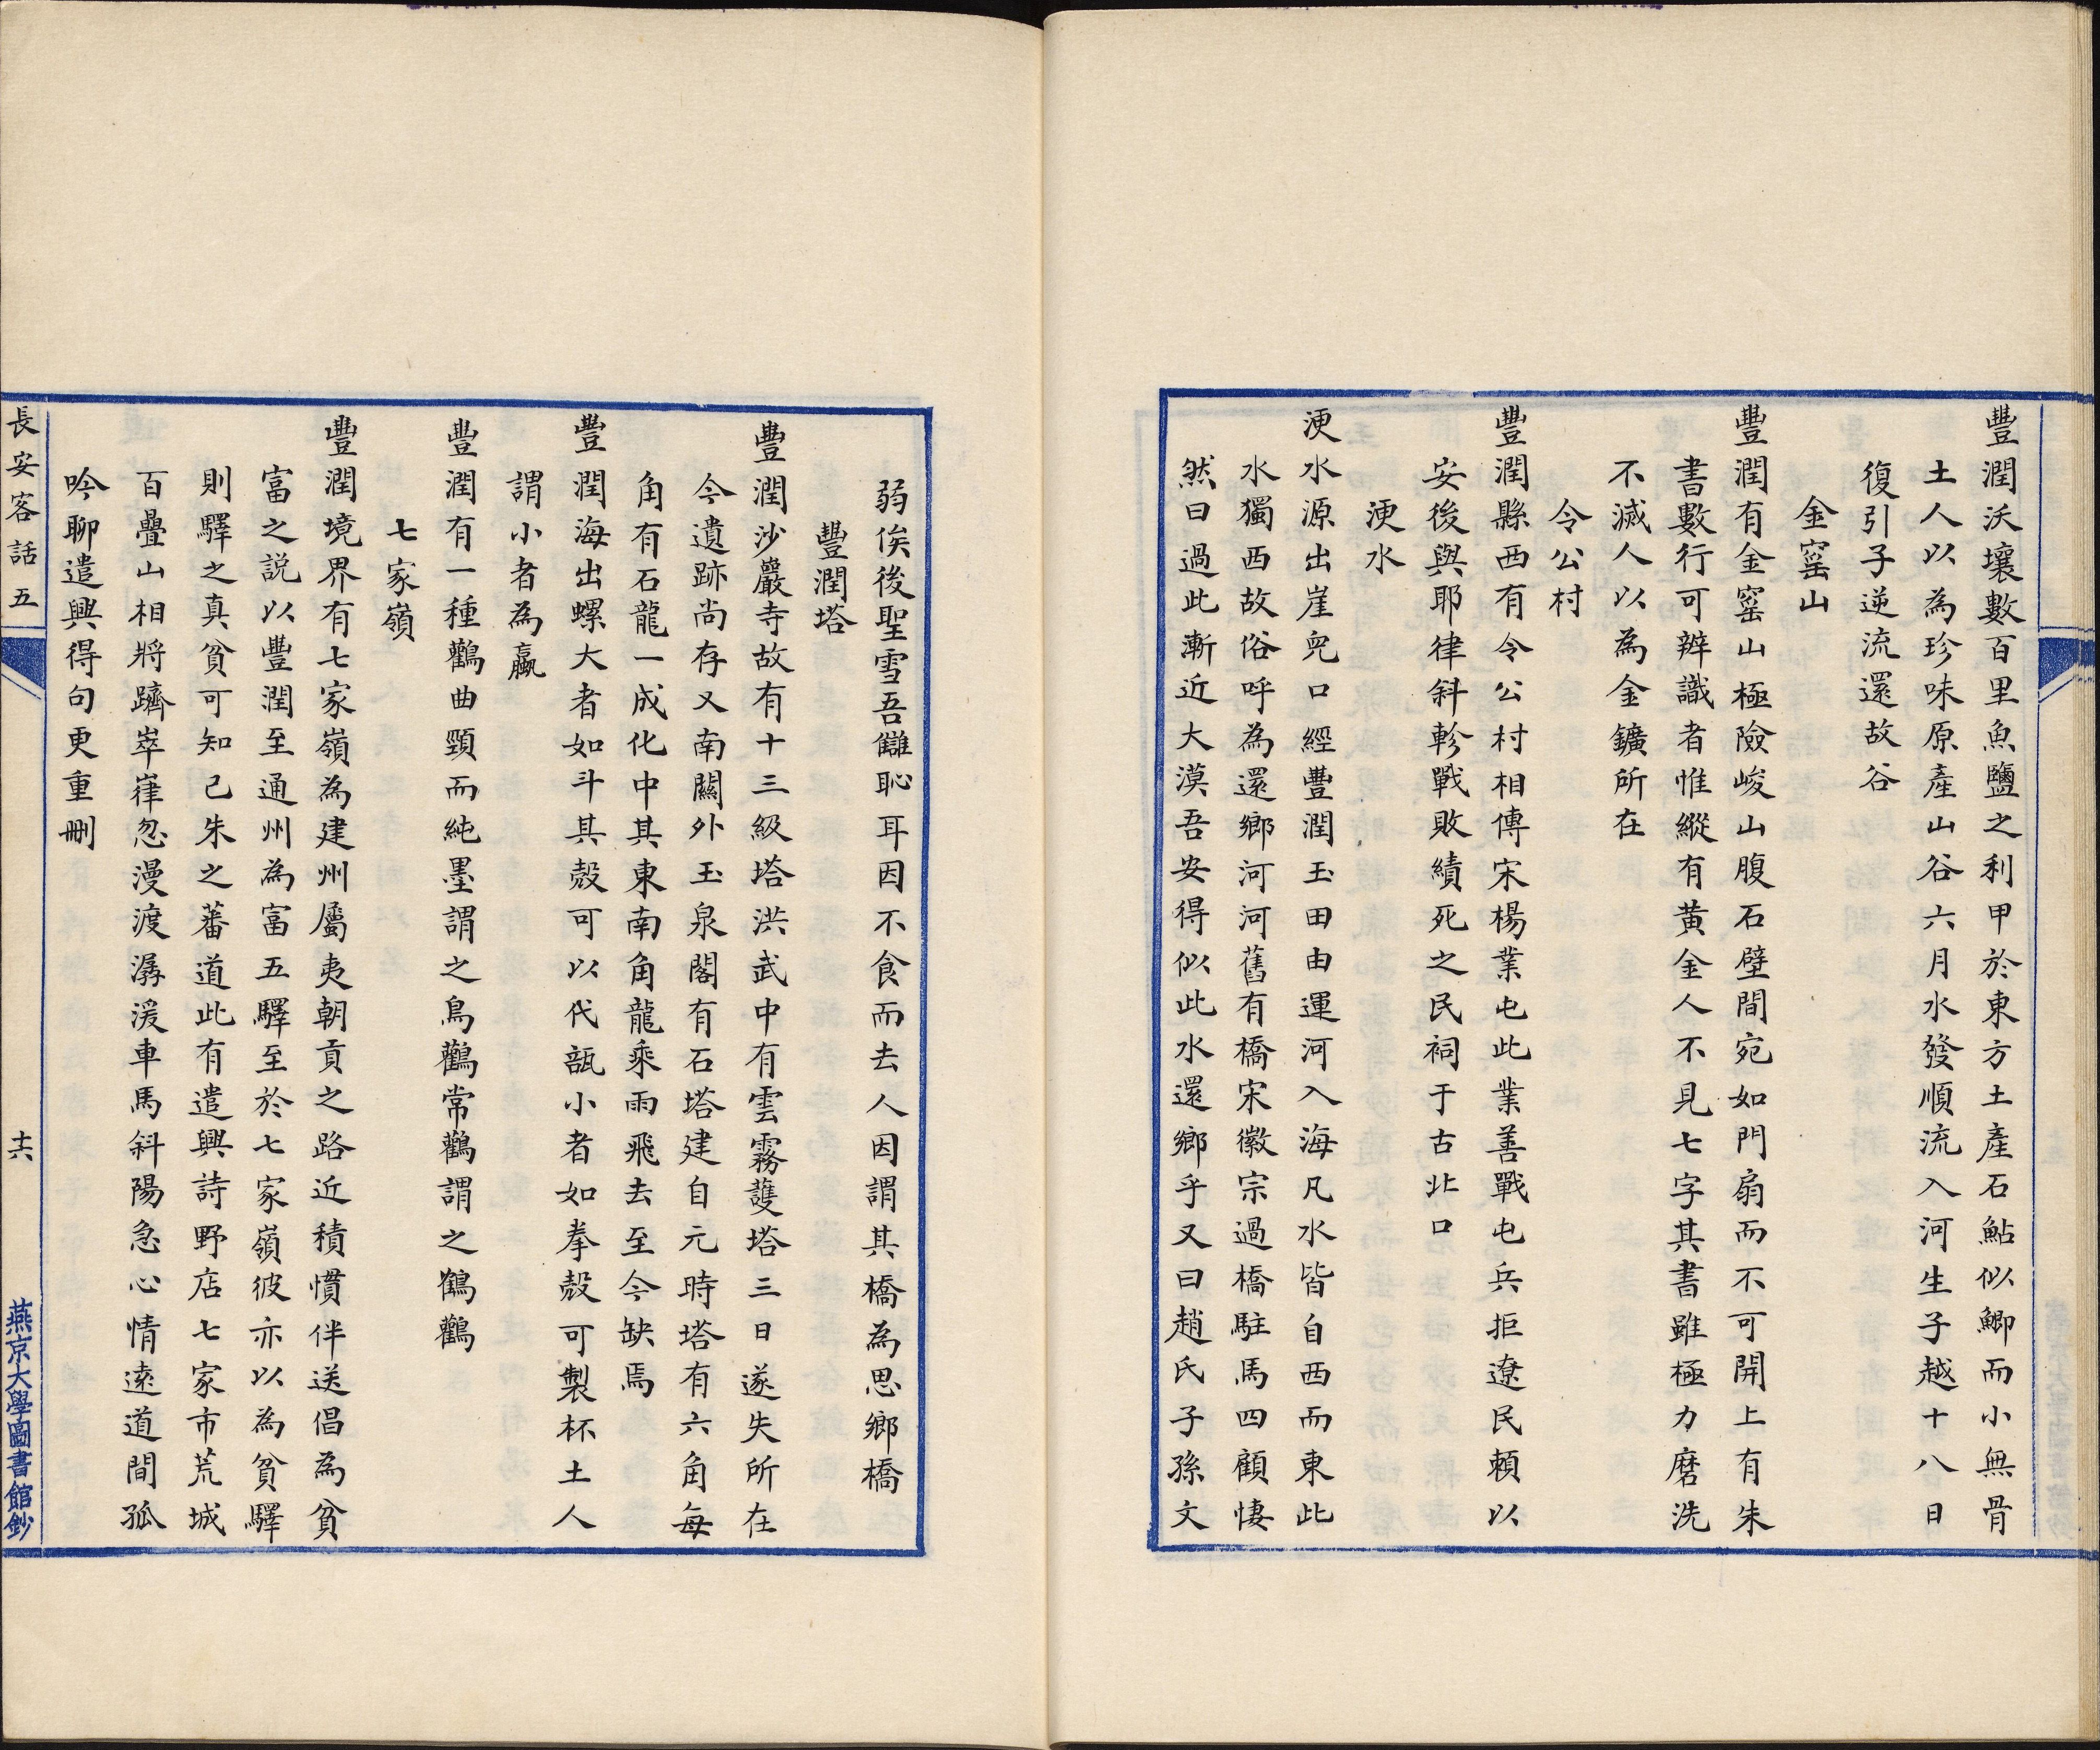 豐潤沃壤數百里魚鹽之利甲於東方土產石鮎似鯽而小無骨
土人以為珍味原產山谷六月水發順流入河生子越十八日
復引子逆流還故谷
金窰山
豐潤有金窰山極險峻山腹石壁間宛如門扇而不可開上有朱
書數行可辨識者惟縱有黄金人不見七字其書雖極力磨洗
不滅人以為金鑛所在
令公村
豐潤縣西有令公村相傳宋楊業屯此業善戰屯兵拒遼民賴以
安後與耶律斜軫戰敗績死之民祠于古北口
浭水
浭水源出崖兒口經豐潤玉田由運河入海凡水皆自西而東此
水獨西故俗呼為還鄉河河舊有橋宋徽宗過橋駐馬四顧悽
然曰過此漸近大漠吾安得似此水還鄉乎又曰趙氏子孫文
弱俟後聖雪吾讎恥耳因不食而去人因謂其橋為思鄉橋
豐潤塔
豐潤沙巖寺故有十三級塔洪武中有雲霧䕶塔三日遂失所在
今遺跡尚存又南關外玉泉閣有石塔建自元時塔有六角每
角有石龍一成化中其東南角龍乘雨飛去至今缺焉
豐潤海出螺大者如斗其殼可以代瓿小者如拳殼可製杯土人
謂小者為蠃
豐潤有一種鸛曲頸而純墨謂之鳥鸛常鸛謂之鶴鸛
七家嶺
豐潤境界有七家嶺為建州屬夷朝貢之路近積慣伴送倡為貧
富之説以豐潤至通州為富五驛至於七家嶺彼亦以為貧驛
則驛之真貧可知己朱之蕃道此有遣興詩野店七家市荒城
百疊山相將躋崒嵂忽漫渡潺湲車馬斜陽急心情遠道間孤
吟聊遣興得句更重刪
長安客話 五
十六
燕京大學圖書館鈔